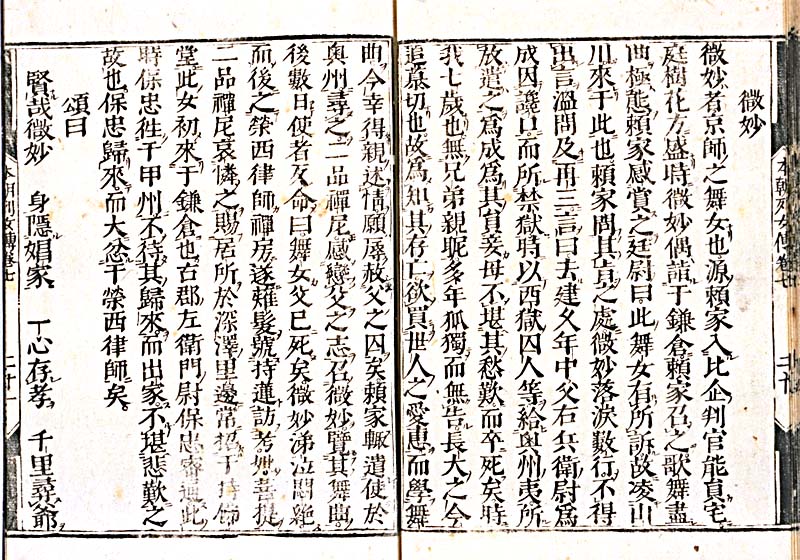 微妙
微妙者京師之舞女也源頼家入比企判官能員宅
庭樹花方盛時微妙偶詣于鎌倉頼家召之歌舞盡
曲極態頼家感賞之廷尉曰此舞女有所訴故凌山
川來于此也頼家問其旨之處微妙落淚數行不得
出言溫問及再三言曰去建久年中父右兵衛尉爲
成因讒口而所禁獄時以西獄囚人等給奥州夷所
放遣之爲成爲其貟妾母不堪其愁歎而卒死矣時
我七歲也無兄弟親昵多年孤獨而無告長大之今
追慕切也故爲知其存亡欲買世人之愛惠而學舞
曲今幸得親述情願辱赦父之囚矣頼家輙遣使於
奥州尋之二品禪尼感戀父之志召微妙覽其舞曲
後數日使者反命曰舞女父已死矣微妙涕泣悶絶
而後之榮西律師禪房遂薙髮號持蓮訪考妣菩提
二品禪尼哀憐之賜居所於深澤里邊常招于持佛
堂此女初來于鎌倉也古郡左衛門尉保忠密通此
時保忠徃于甲州不待其歸來而出家不堪悲歎之
故也保忠歸來而大忿于榮西律師矣
頌曰
賢哉微妙 身隱娼家 一心存孝 千里尋爺
本朝列女傳卷七 二十
本朝列女傳卷七 二十一